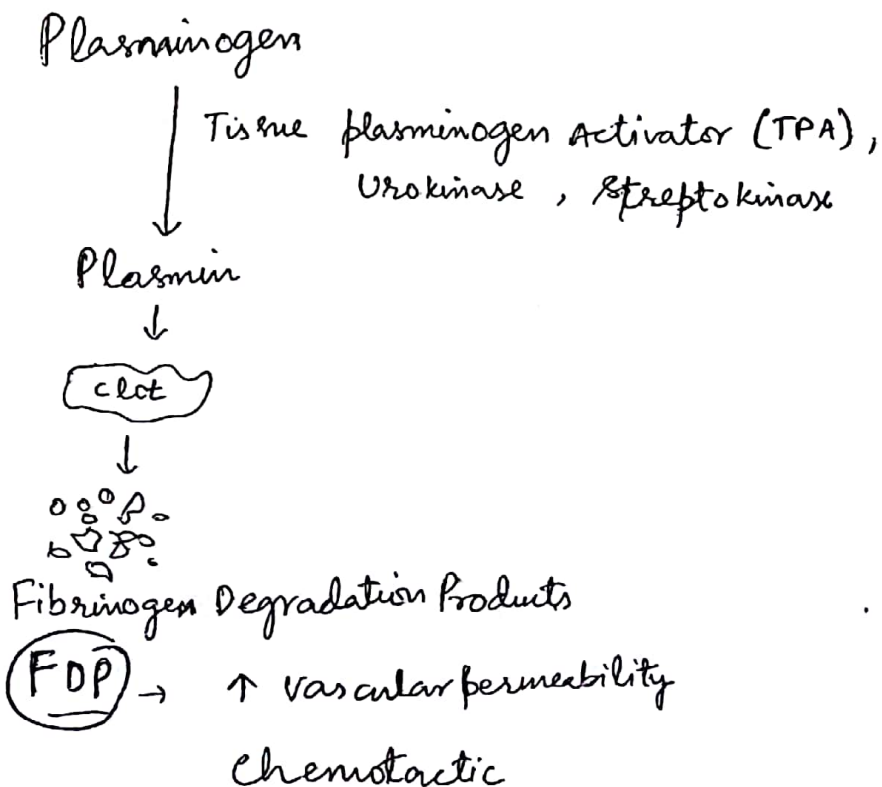 Plasminogen
Tissue plasminogen Activator (TPA),
Urokinase, Streptokinase
Plasmin
clot
Fibrinogen Degradation Products
FDP → ↑ vascular permeability
Chemotactic